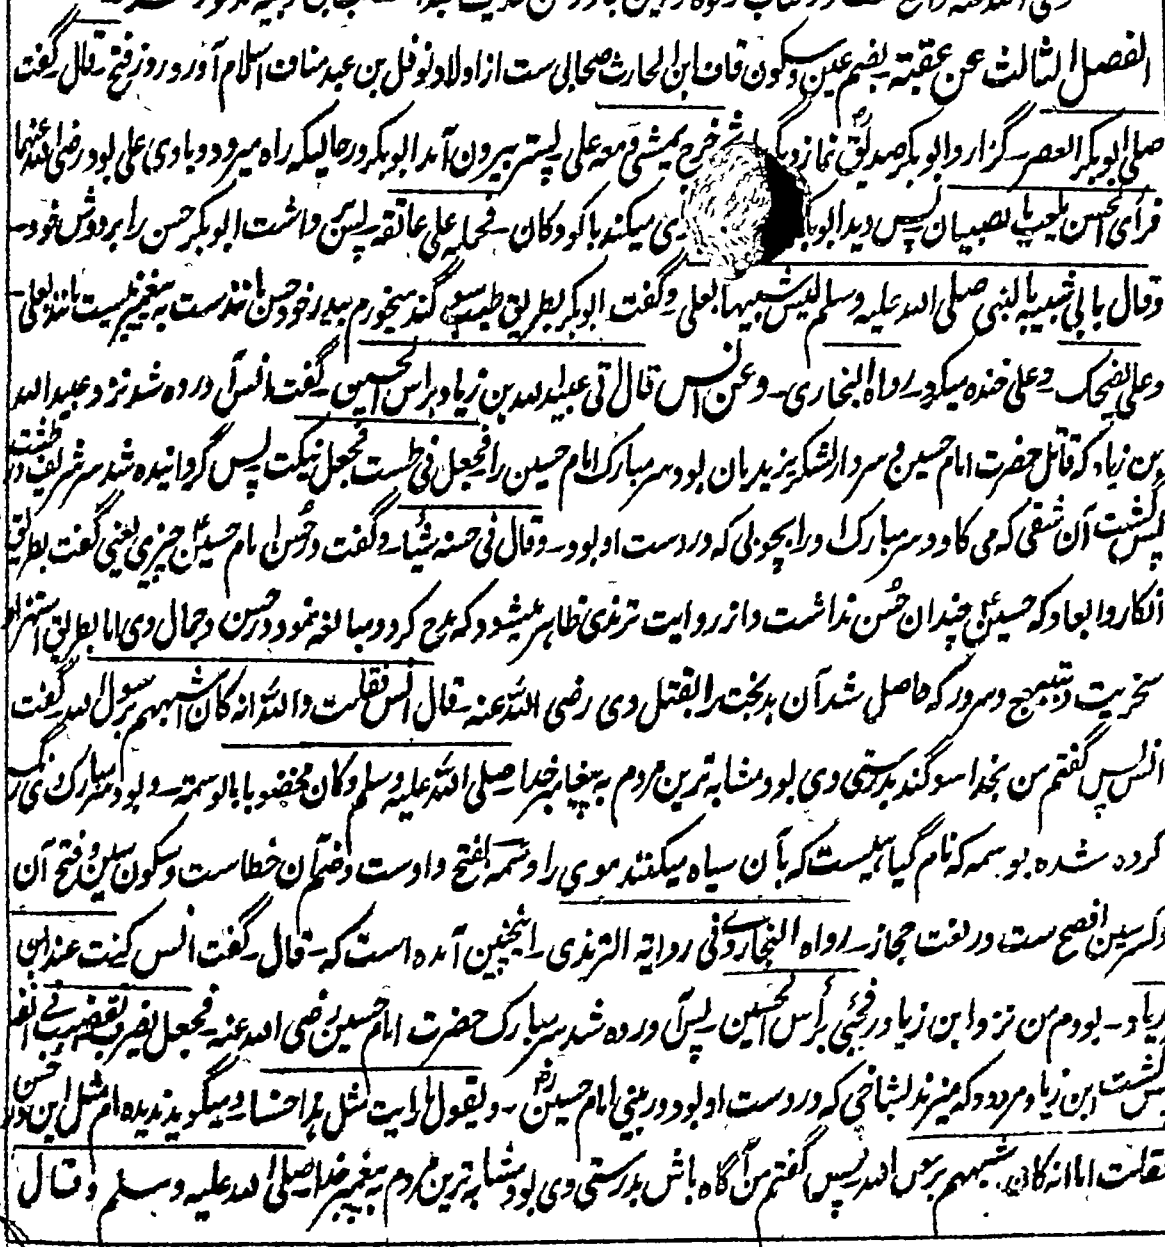 الفصل الثالث عن عقبة بضم عین وسکون قاف ابن الحارث صحابی ست از اولاد نوفل بن عبد مناف اسلام آورد روز فتح قال گفت
صلی ابو بکر العصر گزارد ابو بکر صدیق نماز دیگر ثم خرج یمشی ومعه علی پستر بیرون آمد ابو بکر در حالیکه راه میرود و با وی علی بود رضی الله عنهما
فرأی الحسن یلعب مع الصبیان پس دید ابو بکر میکند با کودکان فحمله علی عاتقه پس برداشت ابو بکر حسن را بر دوش خود
وقال بابی شبیه بالنبی صلی الله علیه وسلم لیس شبیها بعلی وگفت ابو بکر بطریق طیب سوگند میخورم به پدر خود حسن مانندست به پیغمبر نیست مانند بعلی
وعلی یضحک وعلی خنده میکرد رواه البخاری وعن انس قال اتی عبید الله بن زیاد براس الحسین گفت انس آورده شد نزد عبید الله
بن زیاد که قاتل حضرت امام حسین و سردار لشکر یزیدیان بود سر مبارک امام حسین را فجعل فی طست فجعل ینکت پس گردانیده شد سر شریف در طشت
پس گشت آن شقی که می کاود سر مبارک او را بچوبی که در دست او بود وقال فی حسنه شیئا وگفت در حسن امام حسین چیزی یعنی گفت بطریق
انکار و ابعاد که حسین چندان حسن نداشت و از روایت ترمذی ظاهر میشود که مدح کرد و مبالغه نمود در حسن و جمال وی اما بطریق استهزا و
سخریت و تبجح و سرور که حاصل شد آن بدبخت را بقتل وی رضی الله عنه قال انس فقلت والله انه کان اشبههم برسول الله گفت
انس پس گفتم من بخدا سوگند بدرستی وی بود مشابه ترین مردم به پیغامبر خدا صلی الله علیه وسلم وکان مخضوبا بالوسمة و بود سر مبارک وی رنگ
کرده شده بوسمه که نام گیاهیست که بآن سیاه میکنند موی را و وسمه بفتح واو ست وضم آن خطاست وسکون سین وفتح آن
وکسر سین افصح ست در لغت حجاز رواه البخاری وفی روایة الترمذی اینچنین آمده است که قال گفت انس کنت عند ابن
زیاد بودم من نزد ابن زیاد فجئی برأس الحسین پس آورده شد سر مبارک حضرت امام حسین رضی الله عنه فجعل یضرب بقضیب فی انفه
پس گشت ابن زیاد مردود که میزند بشاخی که در دست او بود در بینی امام حسین ویقول ما رایت مثل هذا حسنا ومیگوید ندیده ام مثل این در حسن
فقلت اما انه کان اشبههم برسول الله پس گفتم من آگاه باش بدرستی وی بود مشابه ترین مردم به پیغمبر خدا صلی الله علیه وسلم وقال